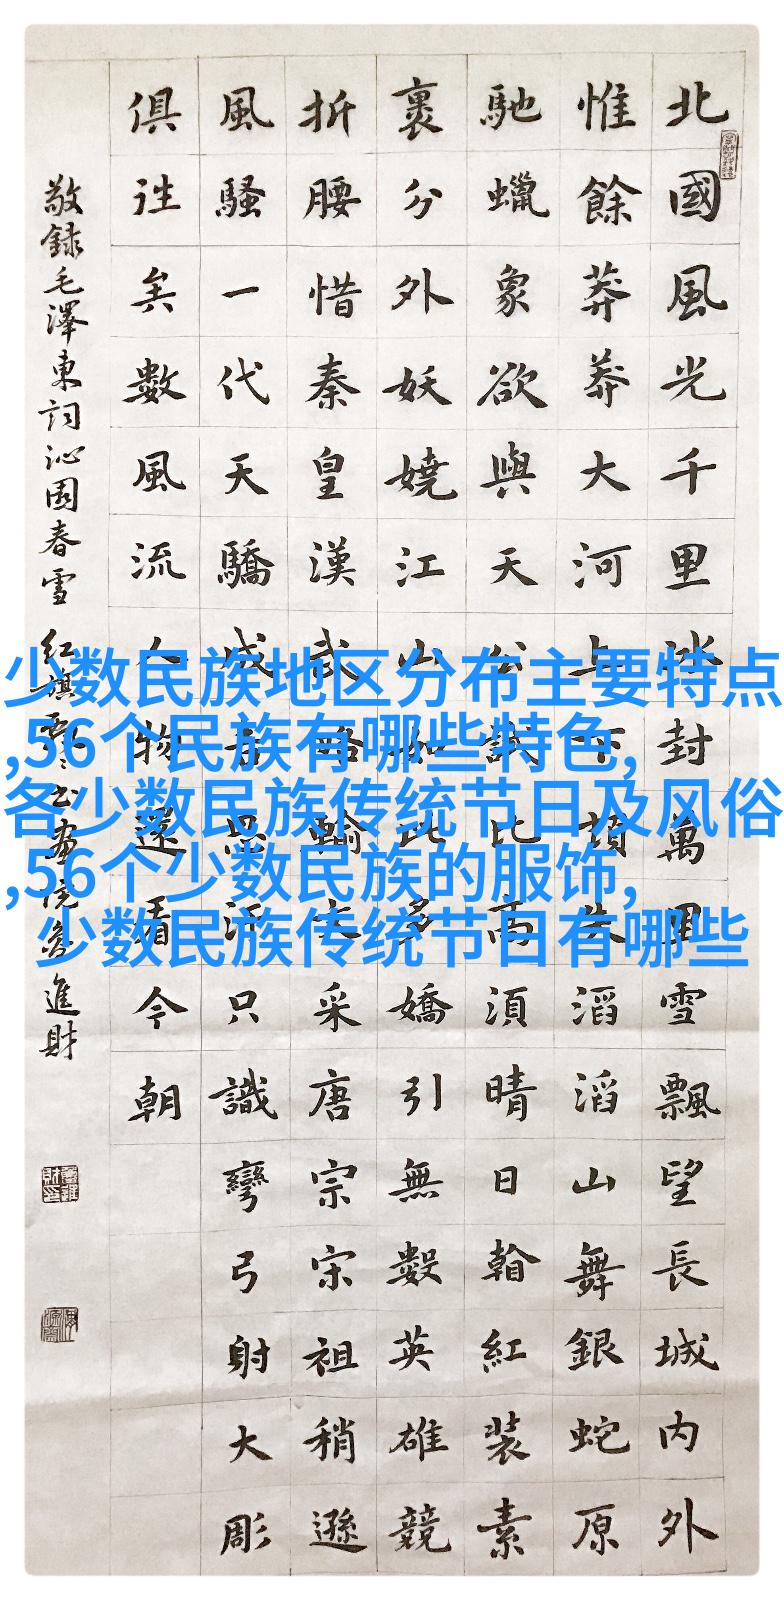 北國風光千里冰封萬里雪飄望長城内外
惟餘莽莽大河上下頓失滔滔山舞銀蛇原
馳蠟象欲與天公試比高湏晴日看紅装素
裹分外妖嬈江山如此多嬌引無數英雄競
折腰惜秦皇漢武略輸文采唐宗宋祖稍遜
風騷一代天驕成吉思汗只識彎弓射大彫
俱往矣數風流人物還看今朝
敬録毛澤東詞沁園春雪 紅旗渠书畫院 進財
少数民族地区分布主要特点
,56个民族有哪些特色,
各少数民族传统节日及风俗
,56个少数民族的服饰,
少数民族传统节日有哪些